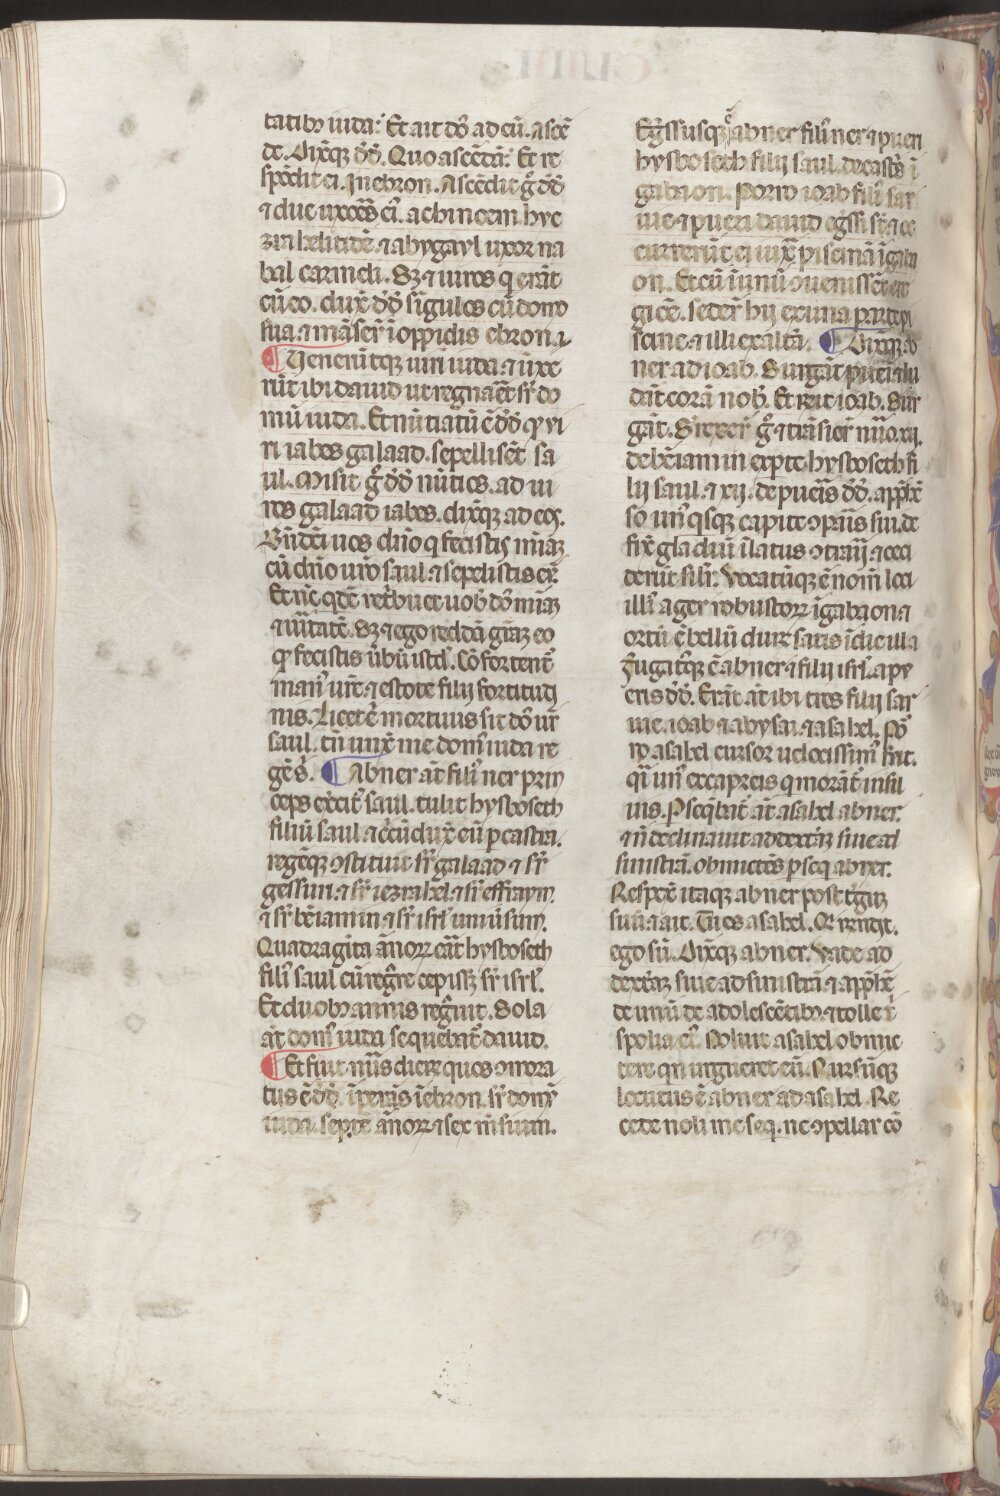 tatibꝫ iuda? Et ait dñs ad eū. Ascē
de. Dixitqꝫ dd̄. Quo ascēdā? Et re
spōdit ei. In ebron. Ascēdit gͦ dd̄
⁊ due uxores ei᷒. achinoem hye
zrahelitide. ⁊ abygayl uxor na
bal carmeli. Sꝫ ⁊ uiros q̄ erāt
cū eo. dux̄ dd̄ singulos cū domo
sua. ⁊ māser̄ ī oppidis ebron. ⁊
¶ Uenerūtqꝫ uiri iuda. ⁊ ūxe
rūt ibi dauid ut regnaret sr̄ do
mū iuda. Et nūtiatū ē dd̄ qꝫ ui
ri iabes galaad. sepellissēt sa
ul. Misit gͦ dd̄ nūtios. ad ui
ros galaad iabes. dixitqꝫ ad eos.
Bn̄dc̄i uos dn̄o q̄ fecistis mīaꝫ
cū dn̄o ur̄o saul. ⁊ sepelistis eū.
Et nc̄ qdē retribuet uob̄ dn̄s mīaꝫ
⁊ ūitatē. Sꝫ ⁊ ego reddā gr̄aꝫ eo
qꝫ fecistis ūbū istd̄. Cōfortent᷒
man᷒ ur̄e. ⁊ estote filij fortitudi
nis. Licet ē mortuus sit dn̄s ur̄
saul. tn̄ unx̄ me dom᷒ iuda re
gē s̄. ¶ Abner at̄ fili᷒ ner prin
ceps exc̄it᷒ saul. tulit hysboseth
filiū saul ⁊ circūdux̄ eū p castra.
regēqꝫ ↄstituit sr̄ galaad ⁊ sr̄
gessuri. ⁊ sr̄ iezrahel. ⁊ sr̄ effraym.
⁊ sr̄ beniamin ⁊ sr̄ isrl̄ uniūsum.
Quadraginta ānoꝝ erāt hysboseth
fili᷒ saul cū regnare cepissꝫ sr̄ isrl̄.
Et duobꝫ annis regnāuit. Sola
at̄ dom᷒ iuda sequebat᷒ dauid.
¶ Et fuit nūs dierꝫ quos ↄmora
tus ē dd̄. īperās ī ebron. sr̄ domū
iuda. septē ānoꝝ ⁊ sex mēsium.
Egressusqꝫ ē abner fili᷒ ner ⁊ pueri
hysboseth filij saul. de castris ī
gabaon. Porro ioab fili᷒ sar
uie ⁊ pueri dauid egssi st̄. ⁊ oc
currerūt ei iuxͣ piscinā ī gaba
on. Et cū ī unū ↄuenissēt ere
giōe. seder̄ hij ex una parte pi
scine. ⁊ illi ex altā. ¶ Dixitqꝫ ab
ner ad ioab. Surgāt pueri ⁊ lu
dāt corā nob̄. Et r̄ndit ioab. Sur
gāt. Surrexer̄ gͦ ⁊ trāsier̄ nūo. xij.
de bēiamin ex parte hysboseth fi
lij saul. ⁊ xij. de pueris dd̄. apphē
so un᷒ qsqꝫ capite ↄparis sui. de
fix̄ gladiū ī latus ↄtrarij ⁊ ceci
derūt sil̄r. Vocatūqꝫ ē nom̄ loci
illi᷒ ager robustoꝝ ī gabaon. ⁊
ortū ē bellū durū satis ī die illa
Fugat᷒qꝫ ē abner ⁊ filij isrl̄. a pu
eris dd̄. Erāt at̄ ibi tres filij sar
uie. ioab ⁊ abysai. ⁊ asahel. Por
ro asahel cursor uelocissim᷒ fuit.
qͣi un᷒ ex capreis q̄ morāt᷒ in sil
uis. Pseqbat᷒ at̄ asahel abner.
⁊ n̄ declinauit ad dextāꝫ siue ad
sinistrā. obmictēs pseq abner.
Respex̄ itaqꝫ abner post tgū
suū. ⁊ ait. Tu es asahel. Q' rn̄dit.
ego sū. Dixitqꝫ abner. Uade ad
dextāꝫ siue ad sinistrā ⁊ apphē
de unū de adolescētibꝫ ⁊ tolle t̄
spolia ei᷒. Noluit asahel obmic
tere qn urgueret eū. Rursūqꝫ
locutus ē abner ad asahel. Re
cede noli me seq. ne ↄpellar cō